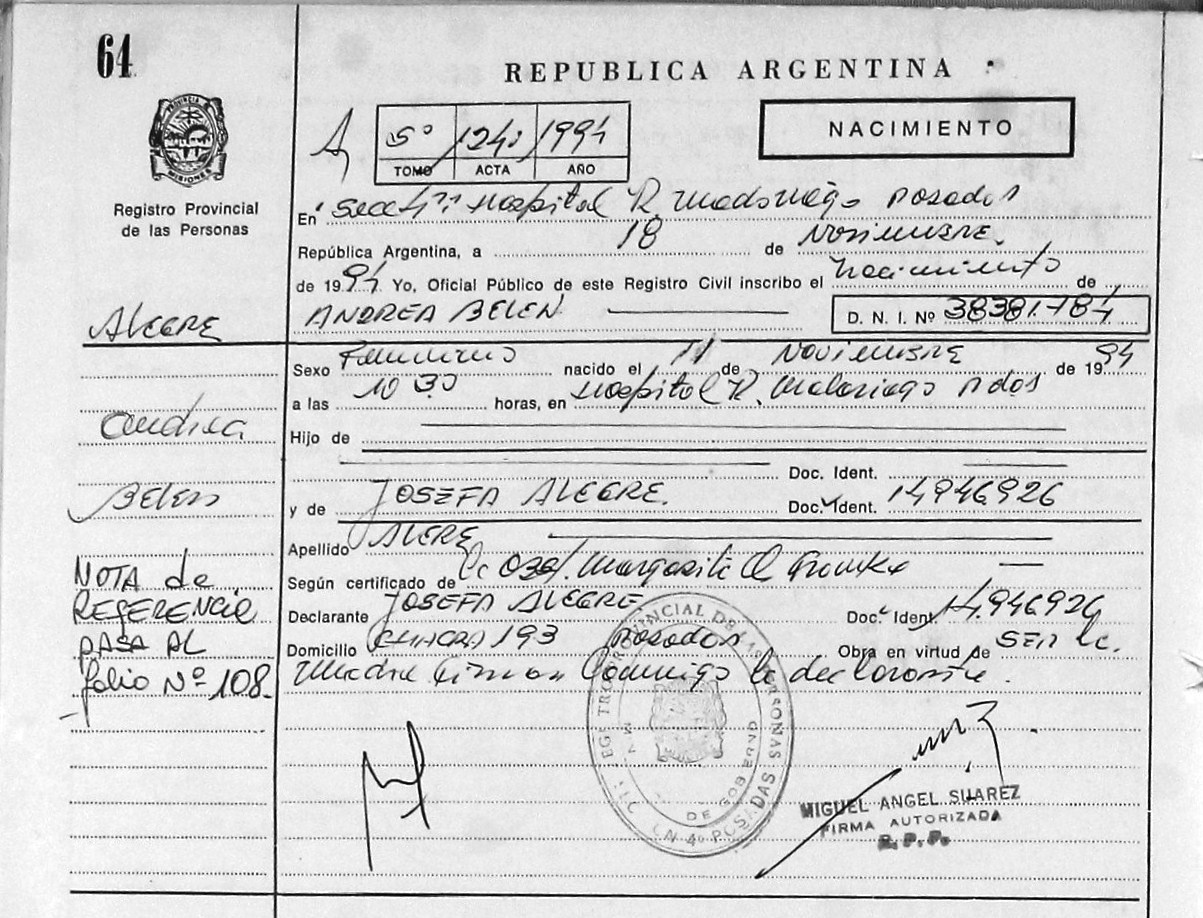 64
REPUBLICA ARGENTINA
NACIMIENTO
A
5º 124 1994
TOMO ACTA AÑO
PROVINCIA DE MISIONES
Registro Provincial
de las Personas
En Secc 4ª Hospital R. Madariaga Posadas
República Argentina, a 18 de Noviembre
de 1994 Yo, Oficial Público de este Registro Civil inscribo el nacimiento de
ALEGRE
ANDREA BELEN
D. N. I. Nº 38381.784
Sexo Femenino nacido el 11 de NOVIEMBRE de 1994
a las 10 30 horas, en Hospital R. Madariaga Pdas
Andrea
Hijo de
Doc. Ident.
Belen
y de JOSEFA ALEGRE. Doc. Ident. 14946926
Apellido ALEGRE
NOTA de
REFERENCIA
PASA AL
folio Nº 108.
Según certificado de la Obst. Margarita
Declarante JOSEFA ALEGRE Doc. Ident. 14.946926
Domicilio CHACRA 193 Posadas Obra en virtud de SER la
madre Firman Conmigo la declarante.
REGISTRO PROVINCIAL DE LAS PERSONAS
MIN. DE GOBIERNO
POSADAS
MIGUEL ANGEL SUAREZ
FIRMA AUTORIZADA
R. P. P.